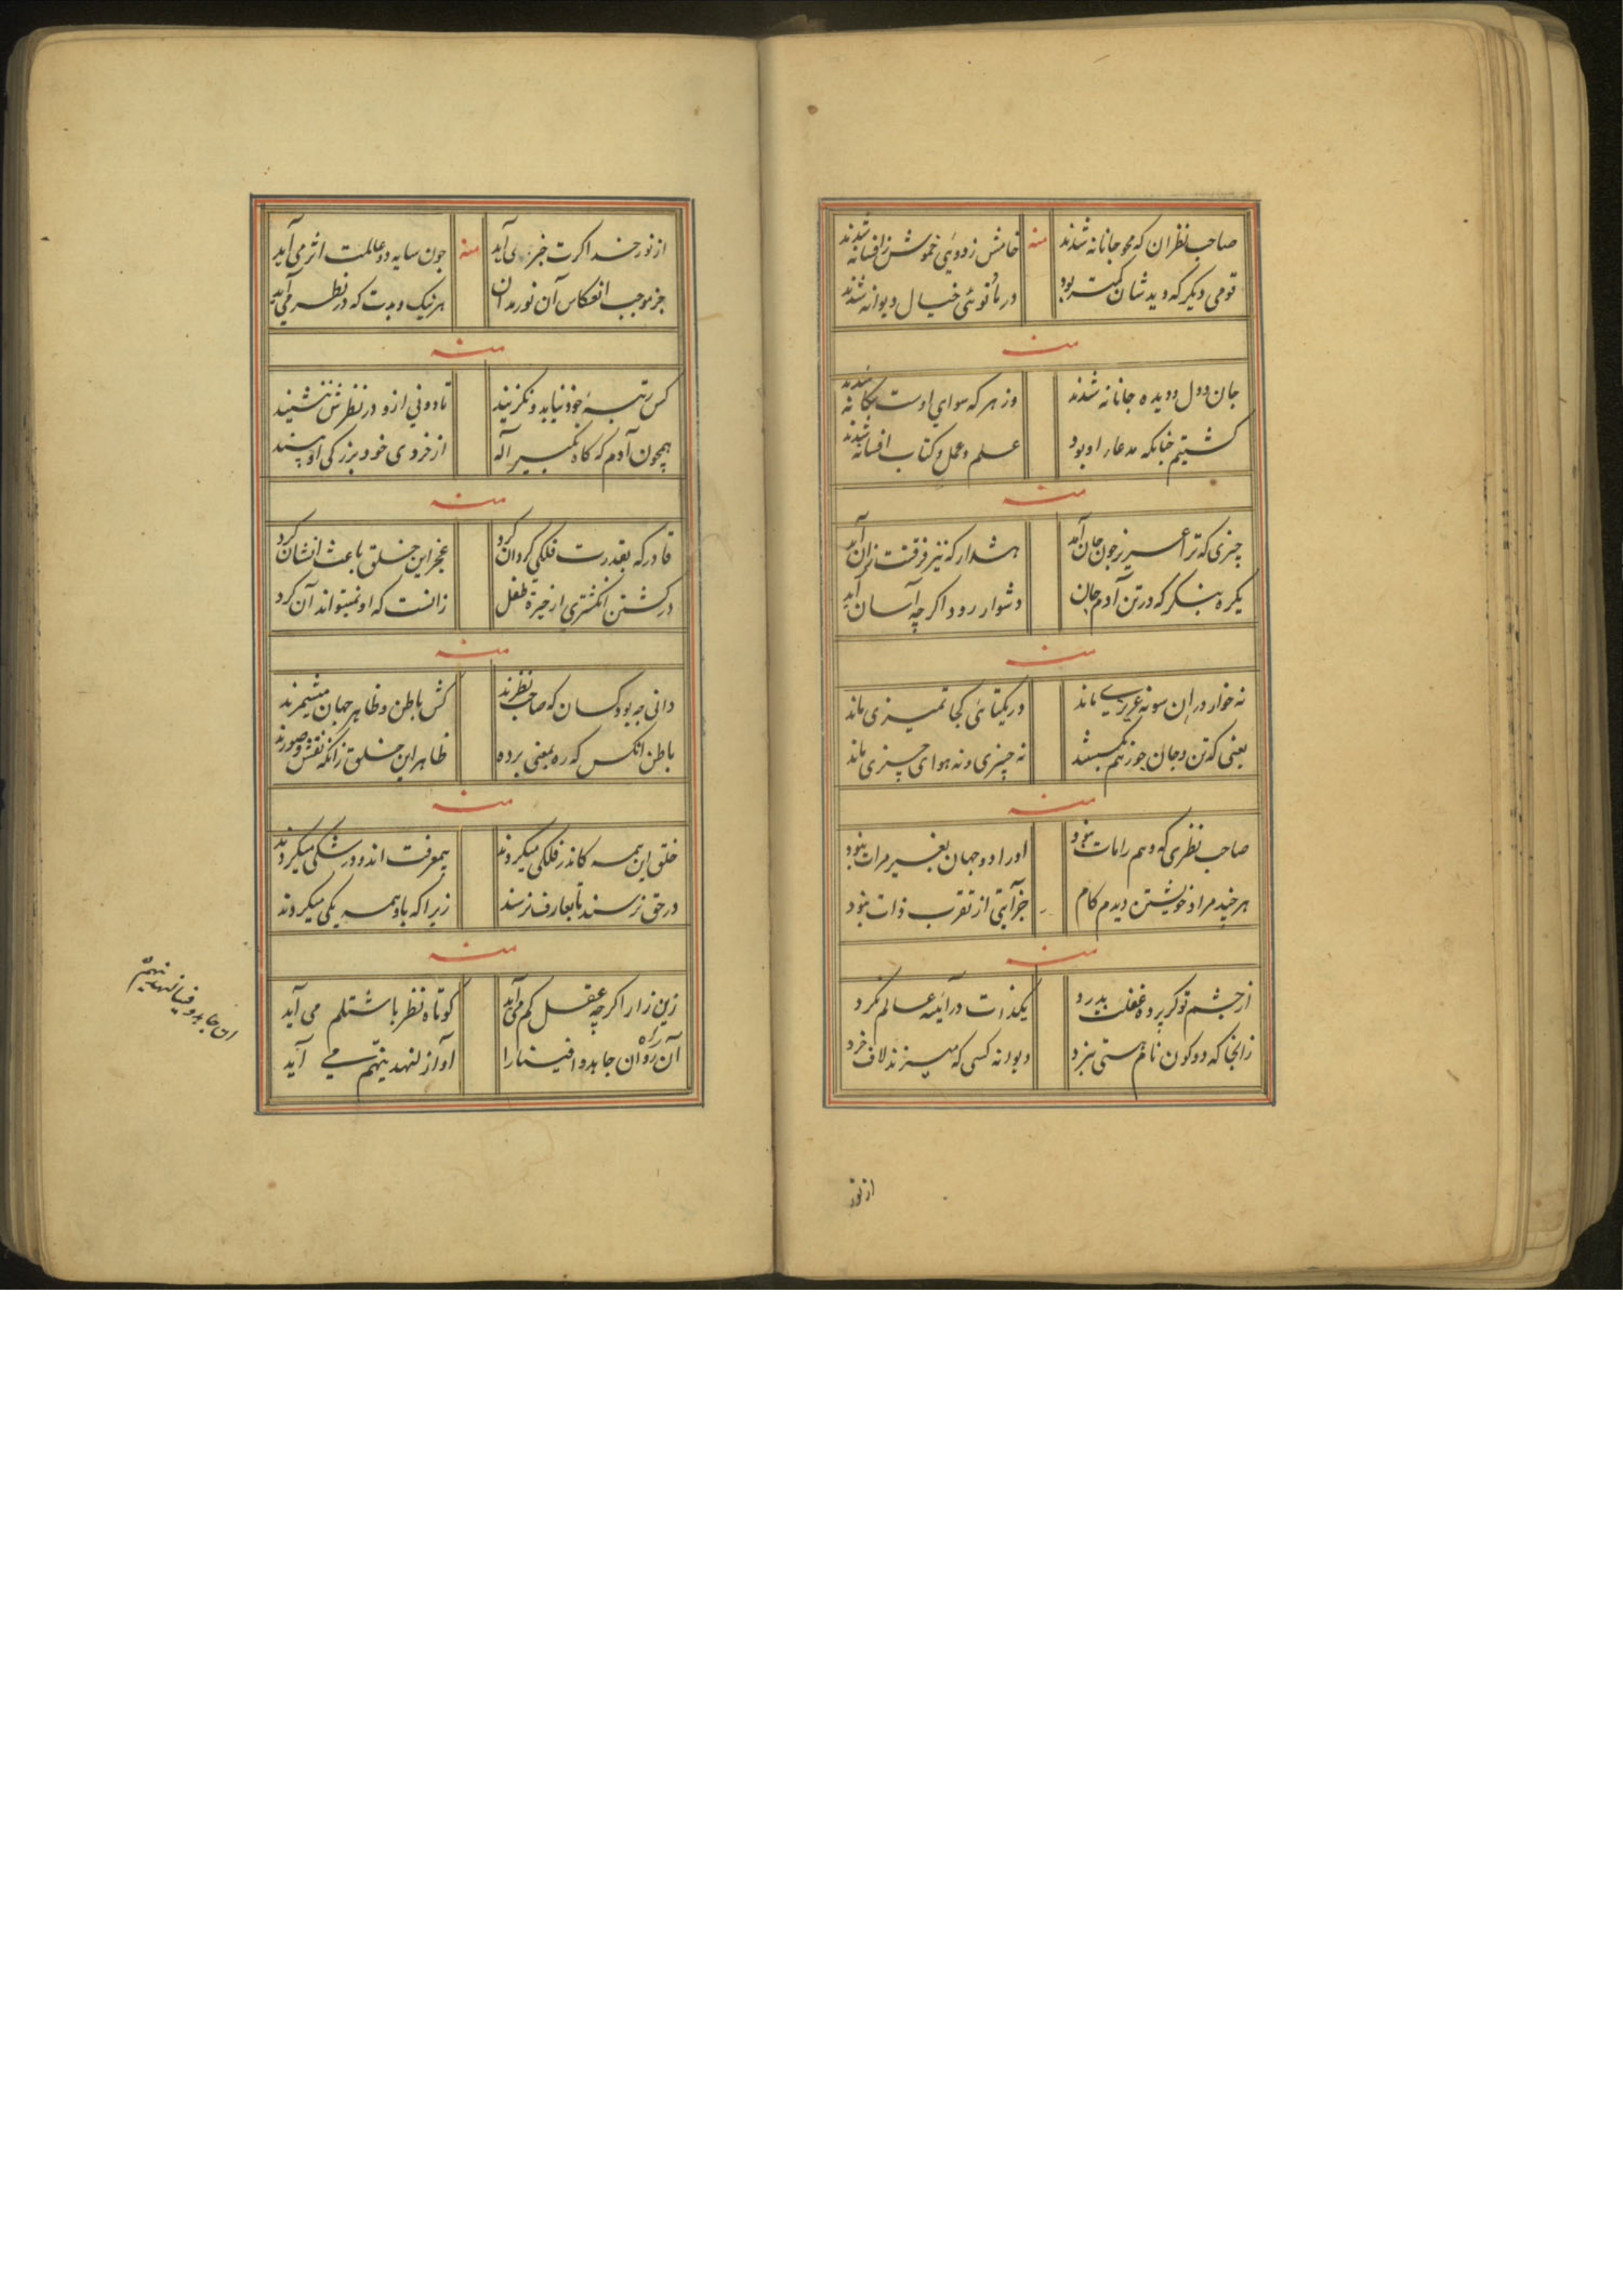 صاحب نظران که محو جانانه شدند منه خامش ز دوئی خموش ز افسانه شدند
قومی دیکر که دید شان کمتر بود در ما و توئی خیال دیوانه شدند
منه
جان و دل و دیده جانانه شدند وز هر که سوای اوست بیکانه شدند
کشتیم چنانکه مدعا او بود علم و عمل و کتاب افسانه شدند
منه
چیزی که ترا عزیز چون جان آمد هشدار که نیز فرقت زان آید
یکره بنکر که در تن آدم جان دشوار رود اکر چه آسان آید
منه
نه خوار در ان سو نه عزیزی ماند در یکتائی کجا تمیزی ماند
یعنی که تن و جان چو ز هم نه چیزی و نه هوای چیزی ماند
منه
صاحب نظری که وهم را مات نبود او را دو جهان بغیر مرات نبود
هر چند مراد خویشتن دیدم کام جز آیتی از تقرب ذات نبود
منه
از چشم تو کر پرده غفلت بدرد یکذات در آئینه عالم نکرد
زانجا که دو کون نام هستی نبرد دیوانه کسی که میزند لاف خرد
از نور
از نور خدا کرت خبر می آید منه چون سایه دو عالمت اثر می آید
جز موجب انعکاس آن نور مدان هر نیک و بدت که در نظر می آید
منه
کس رتبه خود نیابد و نکزیند تا دونی ازو در نظرش ننشیند
همچون آدم که کاه تکبیر اله از خردی خود بزرکی او بیند
منه
قادر که بقدرت فلکی کردان کرد عجز این خلق باعث انشان کرد
در کشتن انکشتری از خیره طفل زانست که او نمیتواند آن کرد
منه
دانی چه بود کسان که صاحب نظرند کش باطن و ظاهر جهان میشمرند
باطن انکس که ره بمعنی برده ظاهر این خلق زانکه نقش و صورند
منه
خلق این همه کاندر فلکی میکردند بیمعرفت اند و در شکی میکردند
در حق نرسند تا بعارف نرسند زیرا که با و همه یکی میکردند
منه
زین زار اکر چه عقل کم می آید کوتاه نظر باشتلم می آید
آن راه روان جاهدوا فینا را آواز لنهدینهم می آید
ان جاهدو فینا لنهدینهم